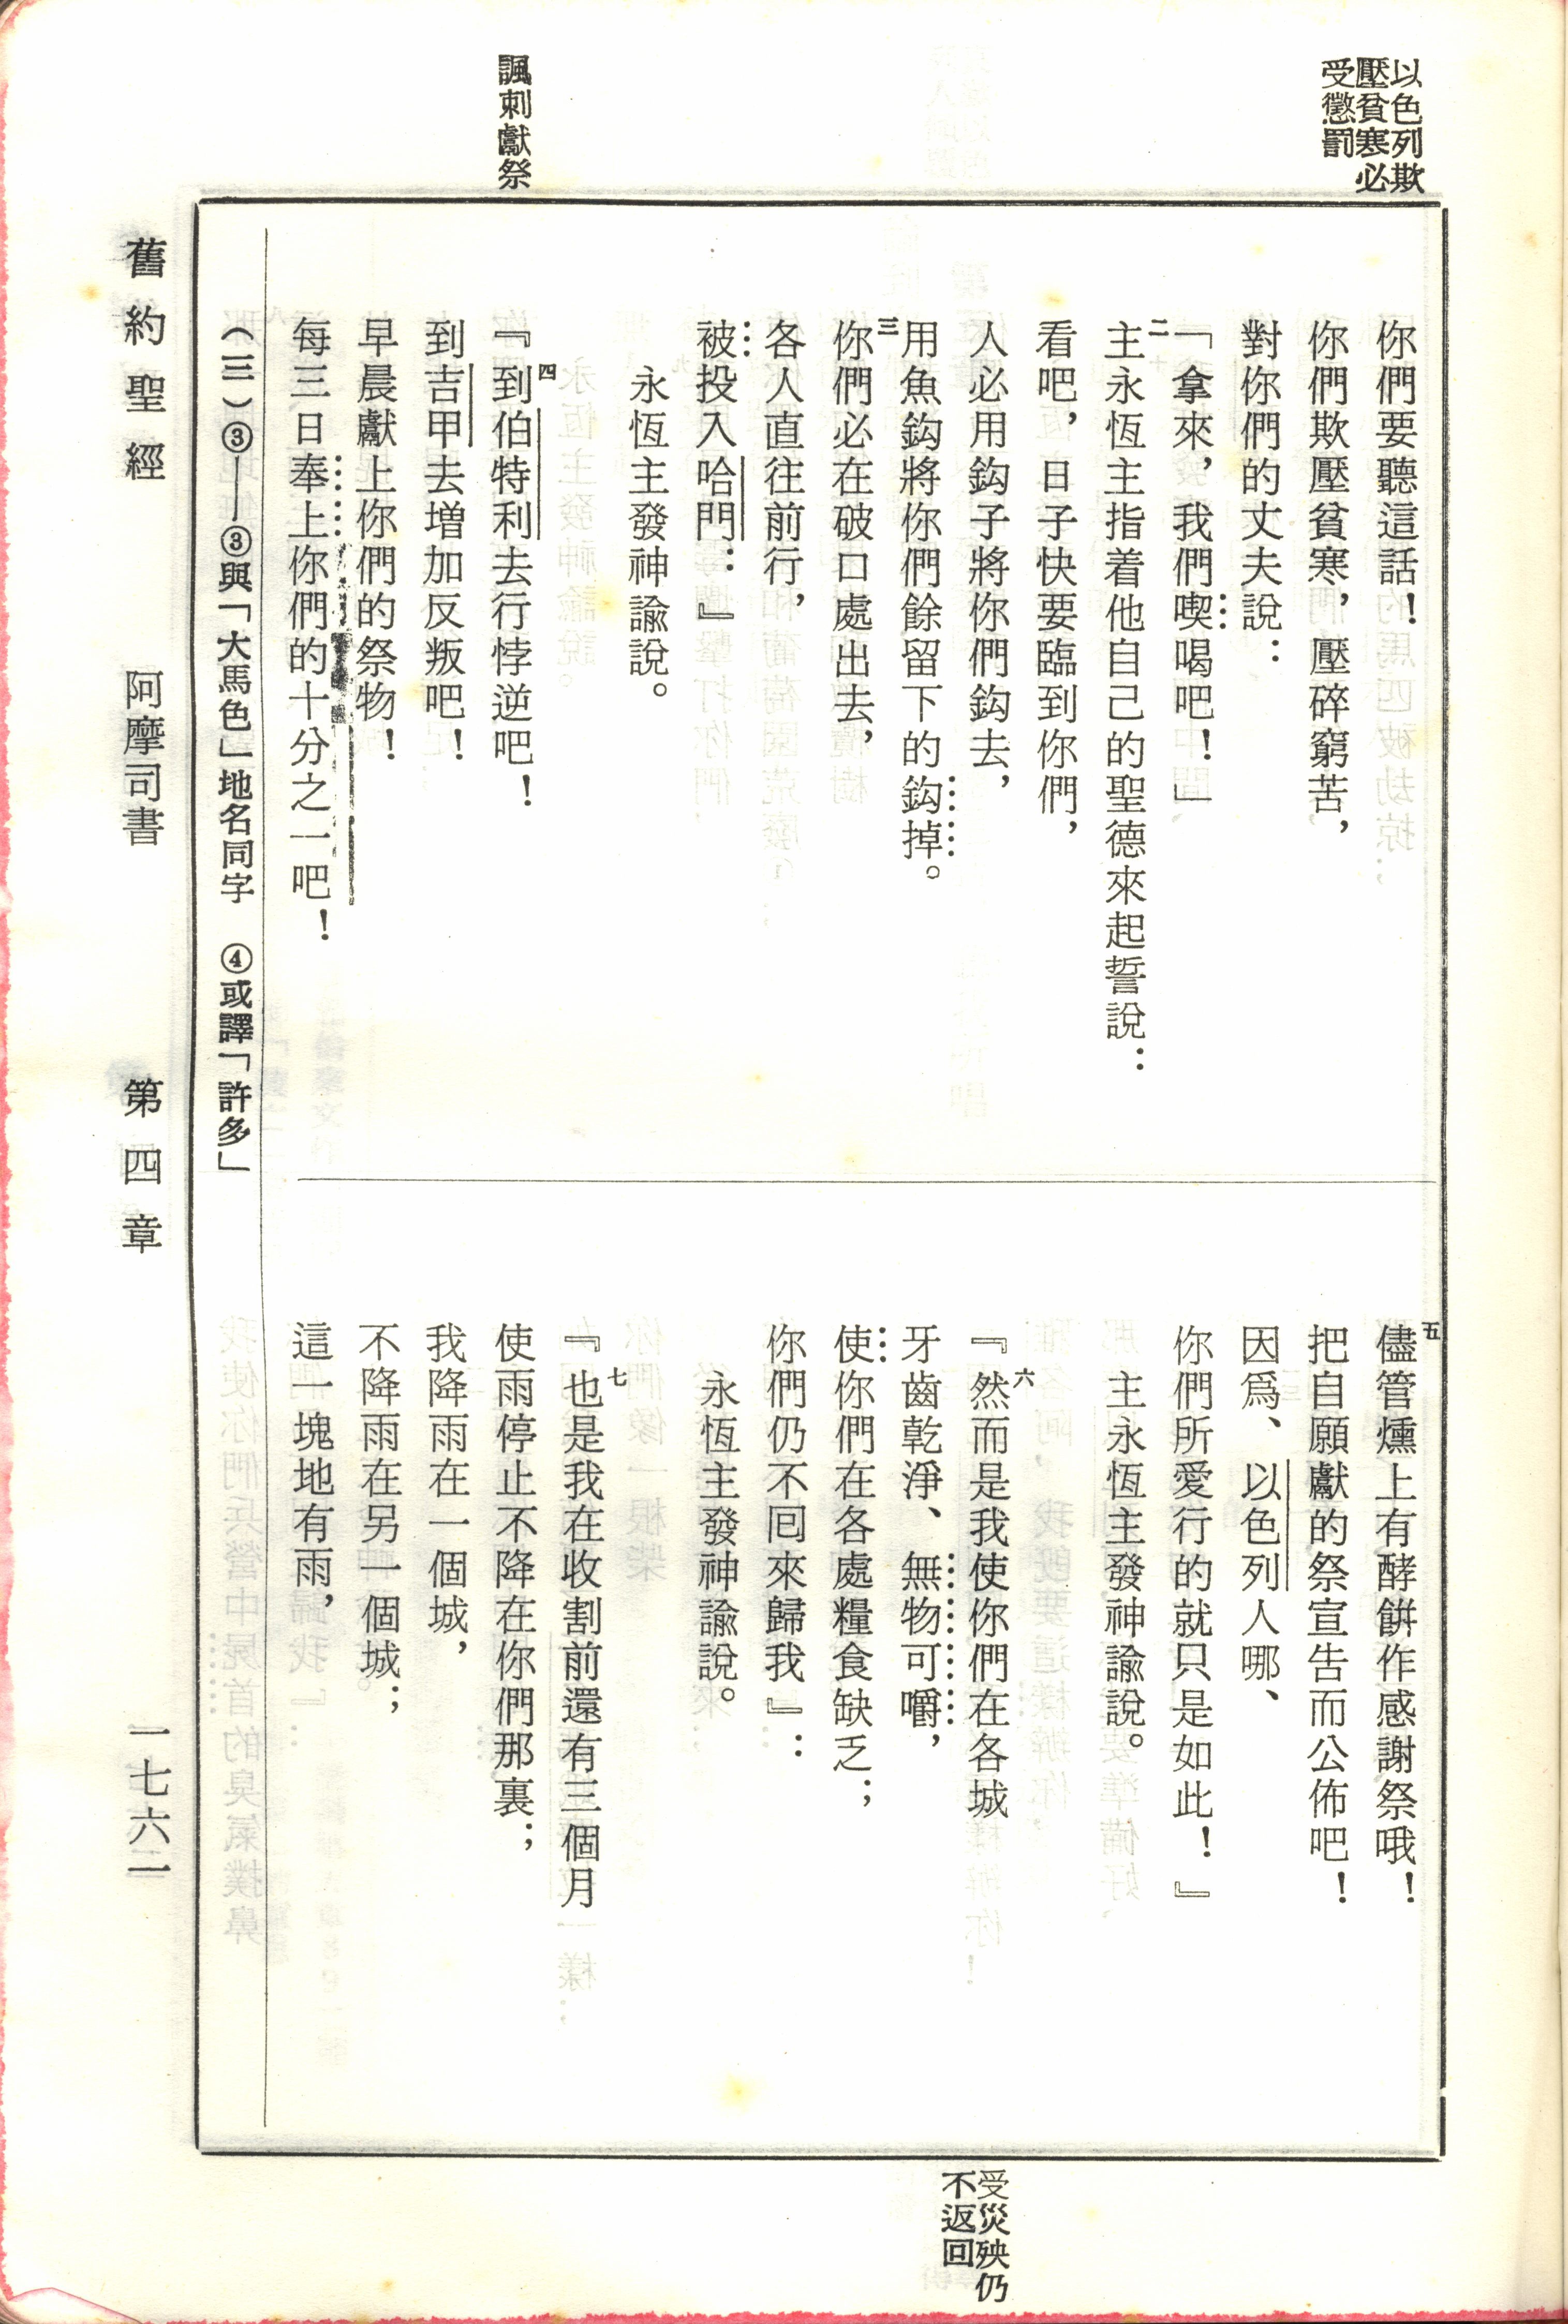 以色列欺
壓貧寒必
受懲罰
諷刺獻祭
你們要聽這話！
你們欺壓貧寒，壓碎窮苦，
對你們的丈夫說：
「拿來，我們喫喝吧！」
二主永恆主指着他自己的聖德來起誓說：
看吧，日子快要臨到你們，
人必用鈎子將你們鈎去，
用魚鈎將你們餘留下的鈎掉。
三你們必在破口處出去，
各人直往前行，
被投入哈門：』
永恆主發神諭說。
四『到伯特利去行悖逆吧！
到吉甲去增加反叛吧！
早晨獻上你們的祭物！
每三日奉上你們的十分之一吧！
五儘管燻上有酵餅作感謝祭哦！
把自願獻的祭宣告而公佈吧！
因爲、以色列人哪、
你們所愛行的就只是如此！』
主永恆主發神諭說。
六『然而是我使你們在各城
牙齒乾淨、無物可嚼，
使你們在各處糧食缺乏；
你們仍不回來歸我』：
永恆主發神諭說。
七『也是我在收割前還有三個月
使雨停止不降在你們那裏；
我降雨在一個城，
不降雨在另一個城；
這一塊地有雨，
受災殃仍
不返回
（三）③—③與「大馬色」地名同字　④或譯「許多」
舊約聖經　阿摩司書　第四章　一七六一